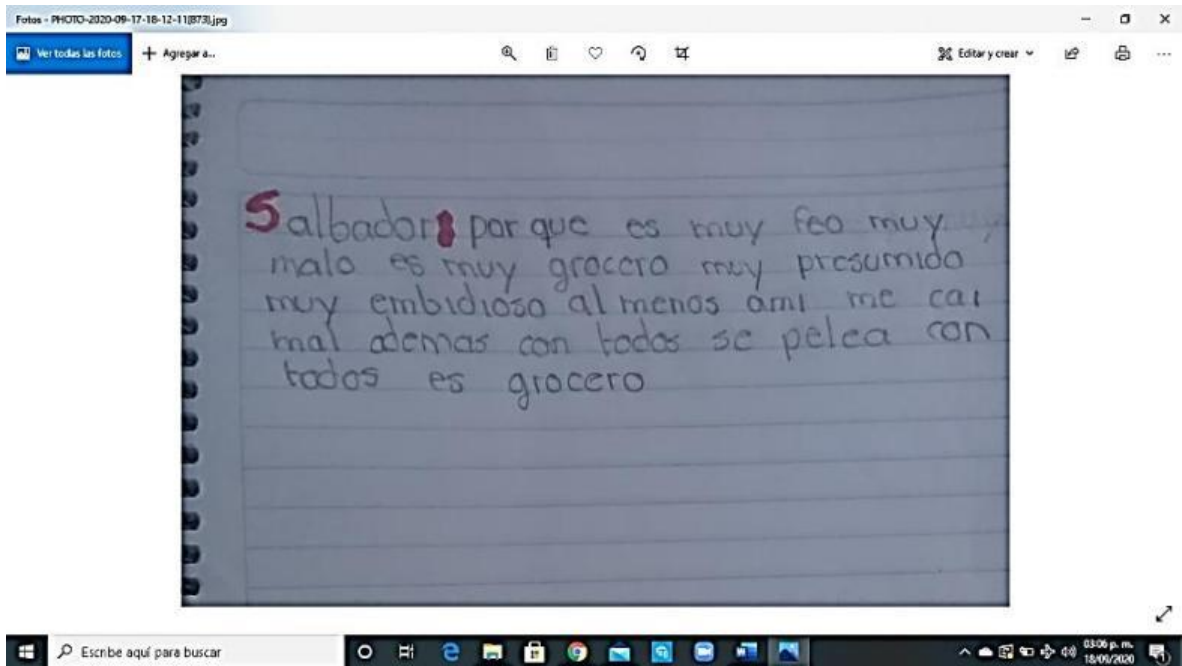 Fotos - PHOTO-2020-09-17-18-12-11(873).jpg
Ver todas las fotos
Agregar a...
Editar y crear
Salbador: por que es muy feo muy
malo es muy grocero muy presumido
muy embidioso al menos ami me cai
mal ademas con todos se pelea con
todos es grocero
Escribe aquí para buscar
03:06 p. m.
18/09/2020